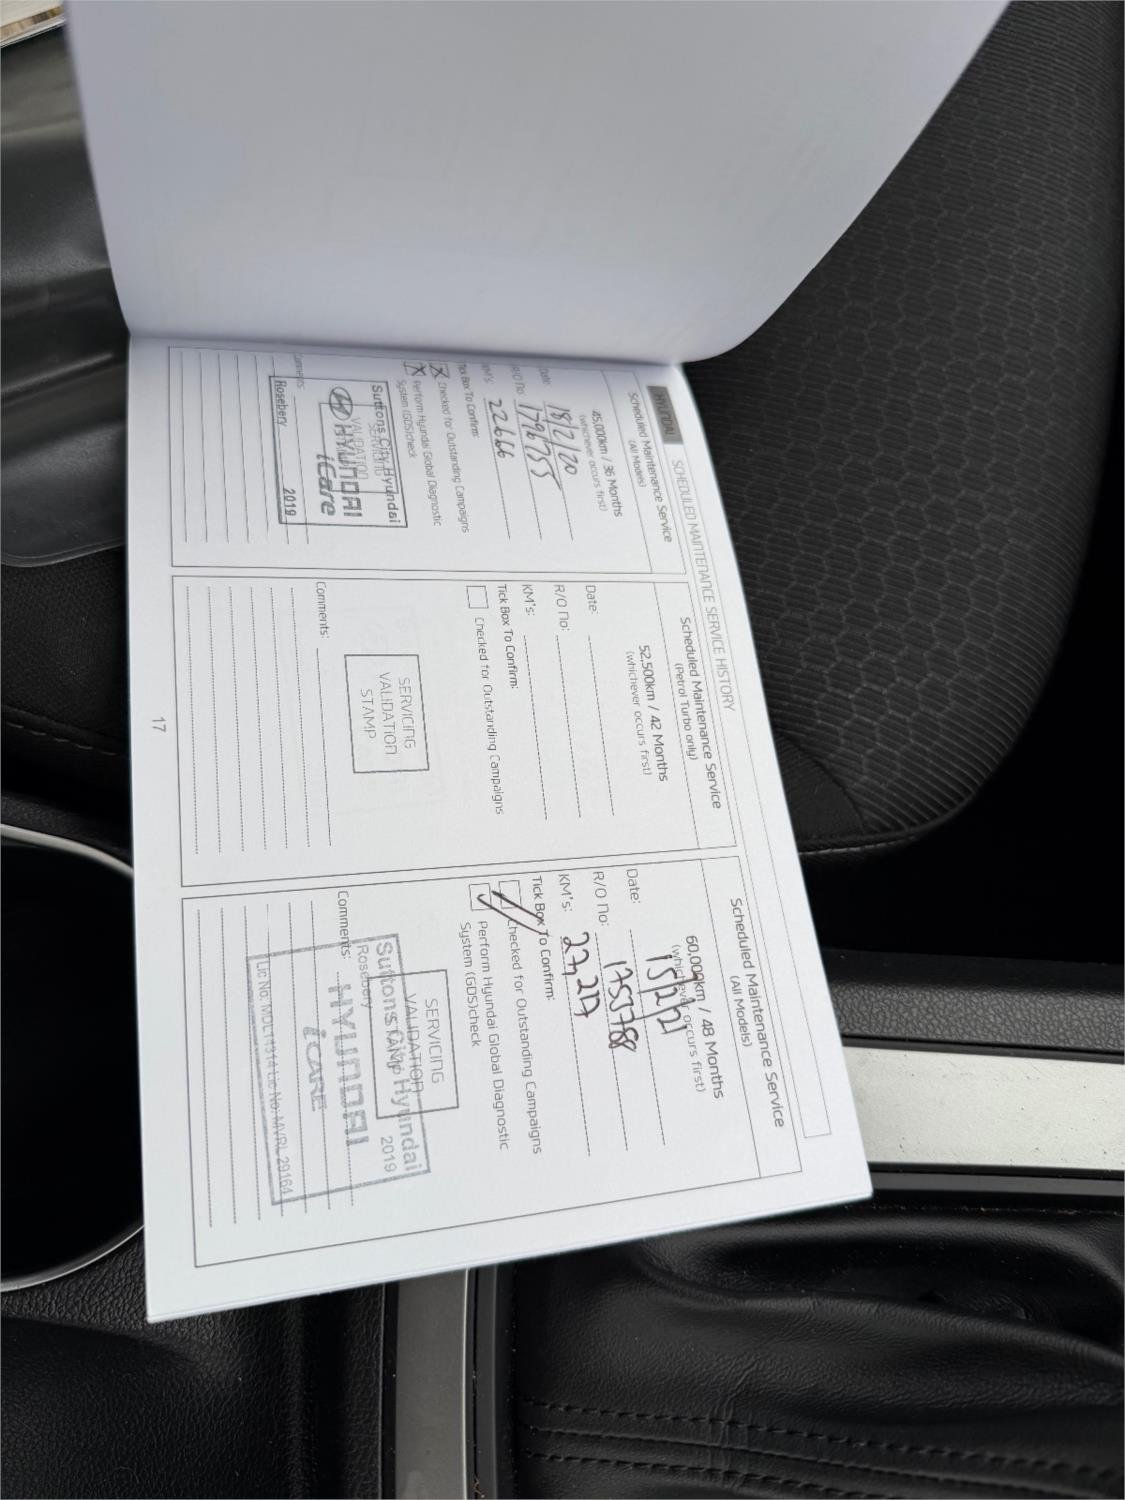 HYUNDAI
SCHEDULED MAINTENANCE SERVICE HISTORY
Scheduled Maintenance Service
(All Models)
45,000km / 36 Months
(whichever occurs first)
Date: 18/2/20
R/O No: 1796755
KM's: 22666
Tick Box To Confirm:
Checked for Outstanding Campaigns
Perform Hyundai Global Diagnostic
System (GDS)check
SERVICING
VALIDATION
Suttons City Hyundai
HYUNDAI
iCare
Rosebery 2019
Comments:
Scheduled Maintenance Service
(Petrol Turbo only)
52,500km / 42 Months
(whichever occurs first)
Date:
R/O No:
KM's:
Tick Box To Confirm:
Checked for Outstanding Campaigns
SERVICING
VALIDATION
STAMP
Comments:
Scheduled Maintenance Service
(All Models)
60,000km / 48 Months
(whichever occurs first)
Date: 15/2/21
R/O No: 1753788
KM's: 27,217
Tick Box To Confirm:
Checked for Outstanding Campaigns
Perform Hyundai Global Diagnostic
System (GDS)check
SERVICING
VALIDATION
STAMP
Suttons City Hyundai
Rosebery 2019
HYUNDAI
iCARE
Lic No: MVRL 29164
Comments:
17